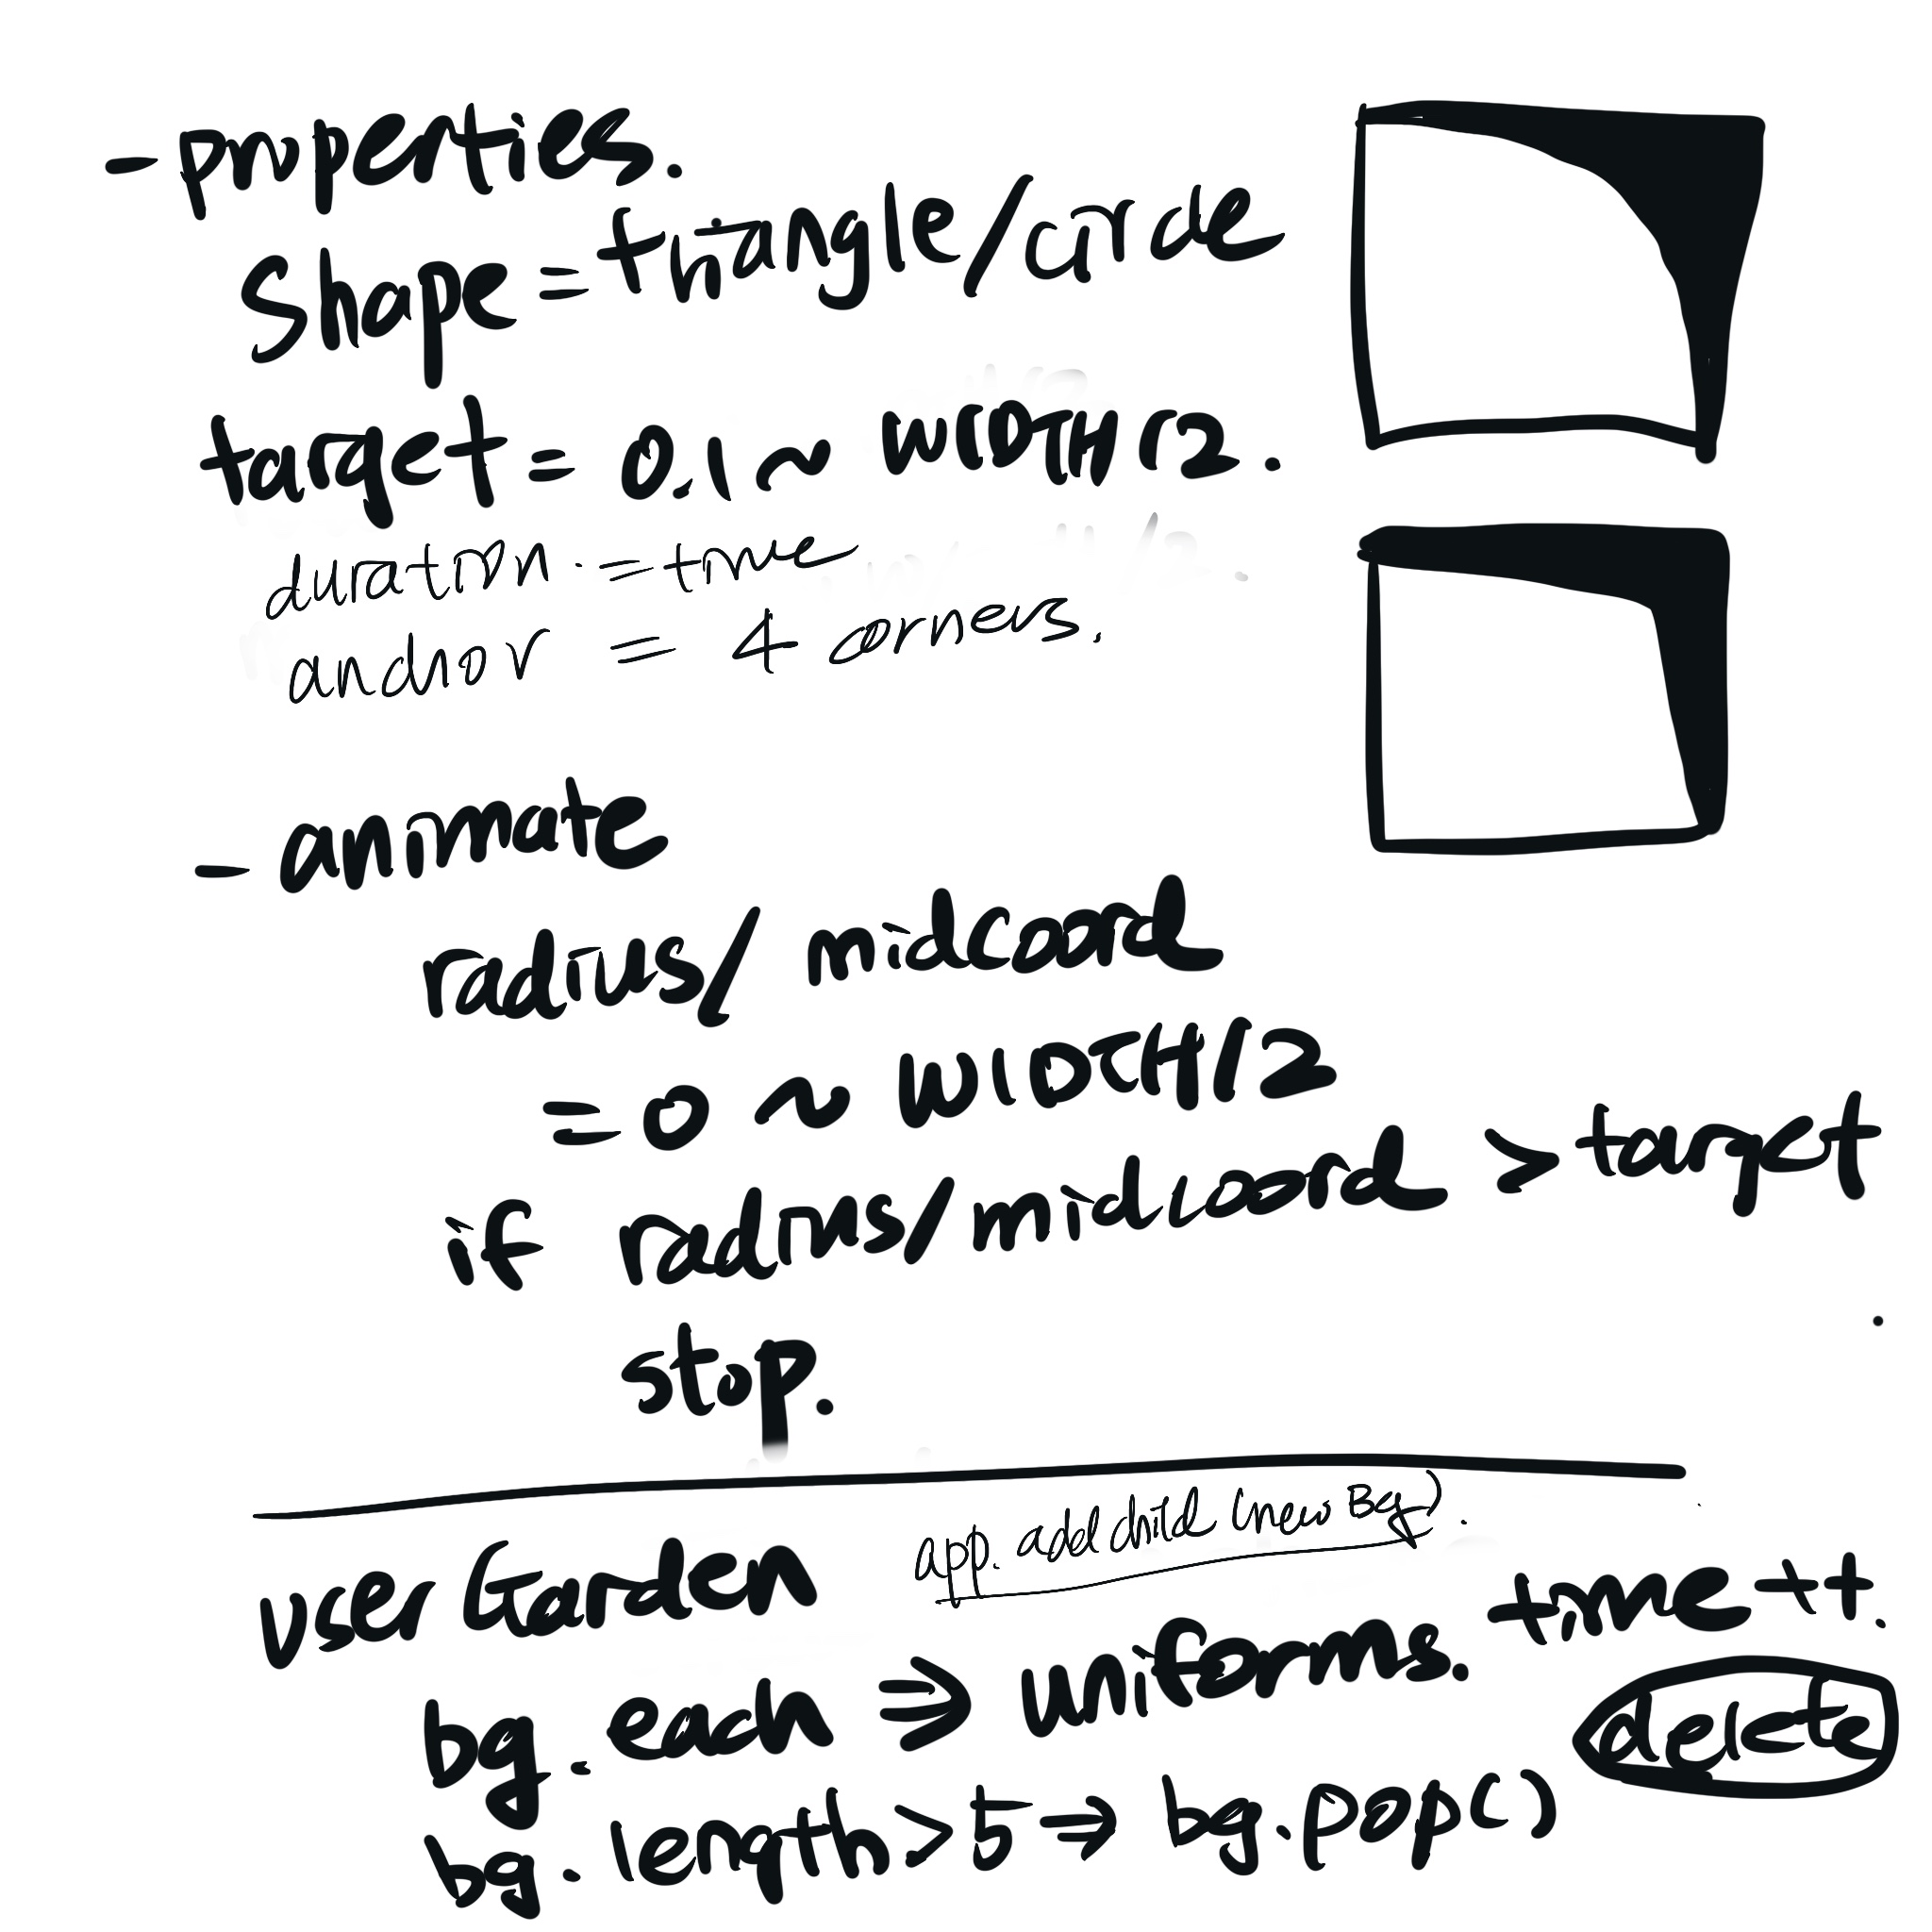 - properties.
shape = triangle/circle
target = 0.1 ~ WIDTH/2.
duration = time
anchor = 4 corners.
- animate
radius/ midcoord
= 0 ~ WIDTH/2
if radius/midcoord > target
stop.
app. addchild (new Bg).
User Garden
bg.each => uniforms. time ++.
delete
bg.length > 5 → bg.pop()